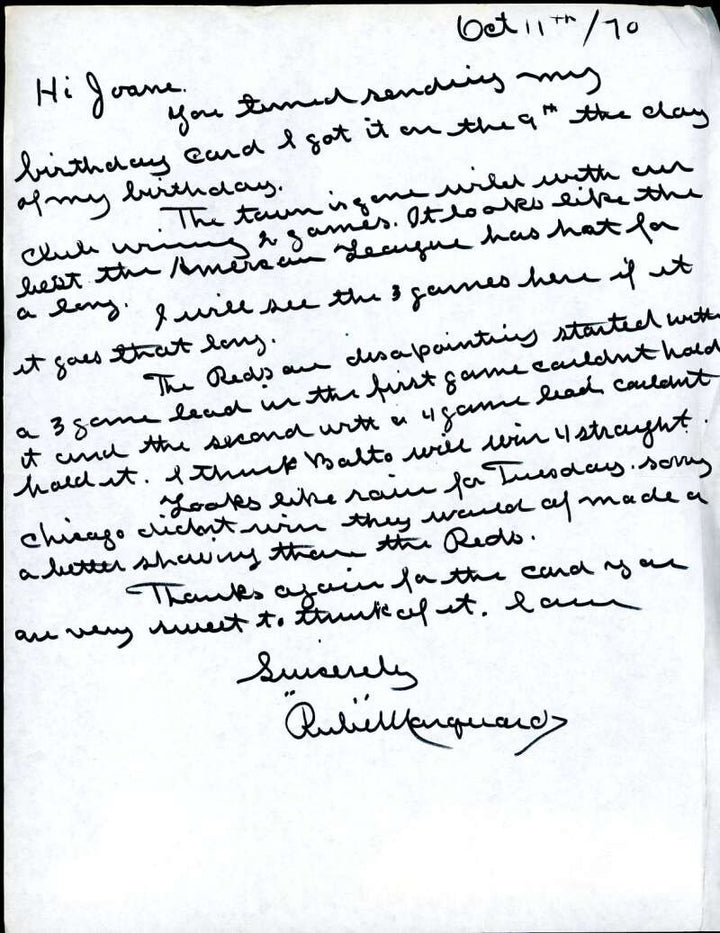 Oct 11th/70
Hi Joane.
You timed sending my
birthday card I got it on the 9th the day
of my birthday.
The town is gone wild with our
Club wining 2 games. It looks like the
best the American League has hat for
a long.
I will see the 3 games here if it
it goes that long.
The Reds are disapointing started with
a 3 game lead in the first game couldnt hold
it and the second with a 4 game lead couldnt
hold it. I think Balto will win 4 straight.
Looks like rain for Tuesday. sorry
chicago didnt win they would of made a
a better showing than the Reds.
Thanks again for the card you
are very sweet to think of it. I am
Sincerely
"Rube" Marquard